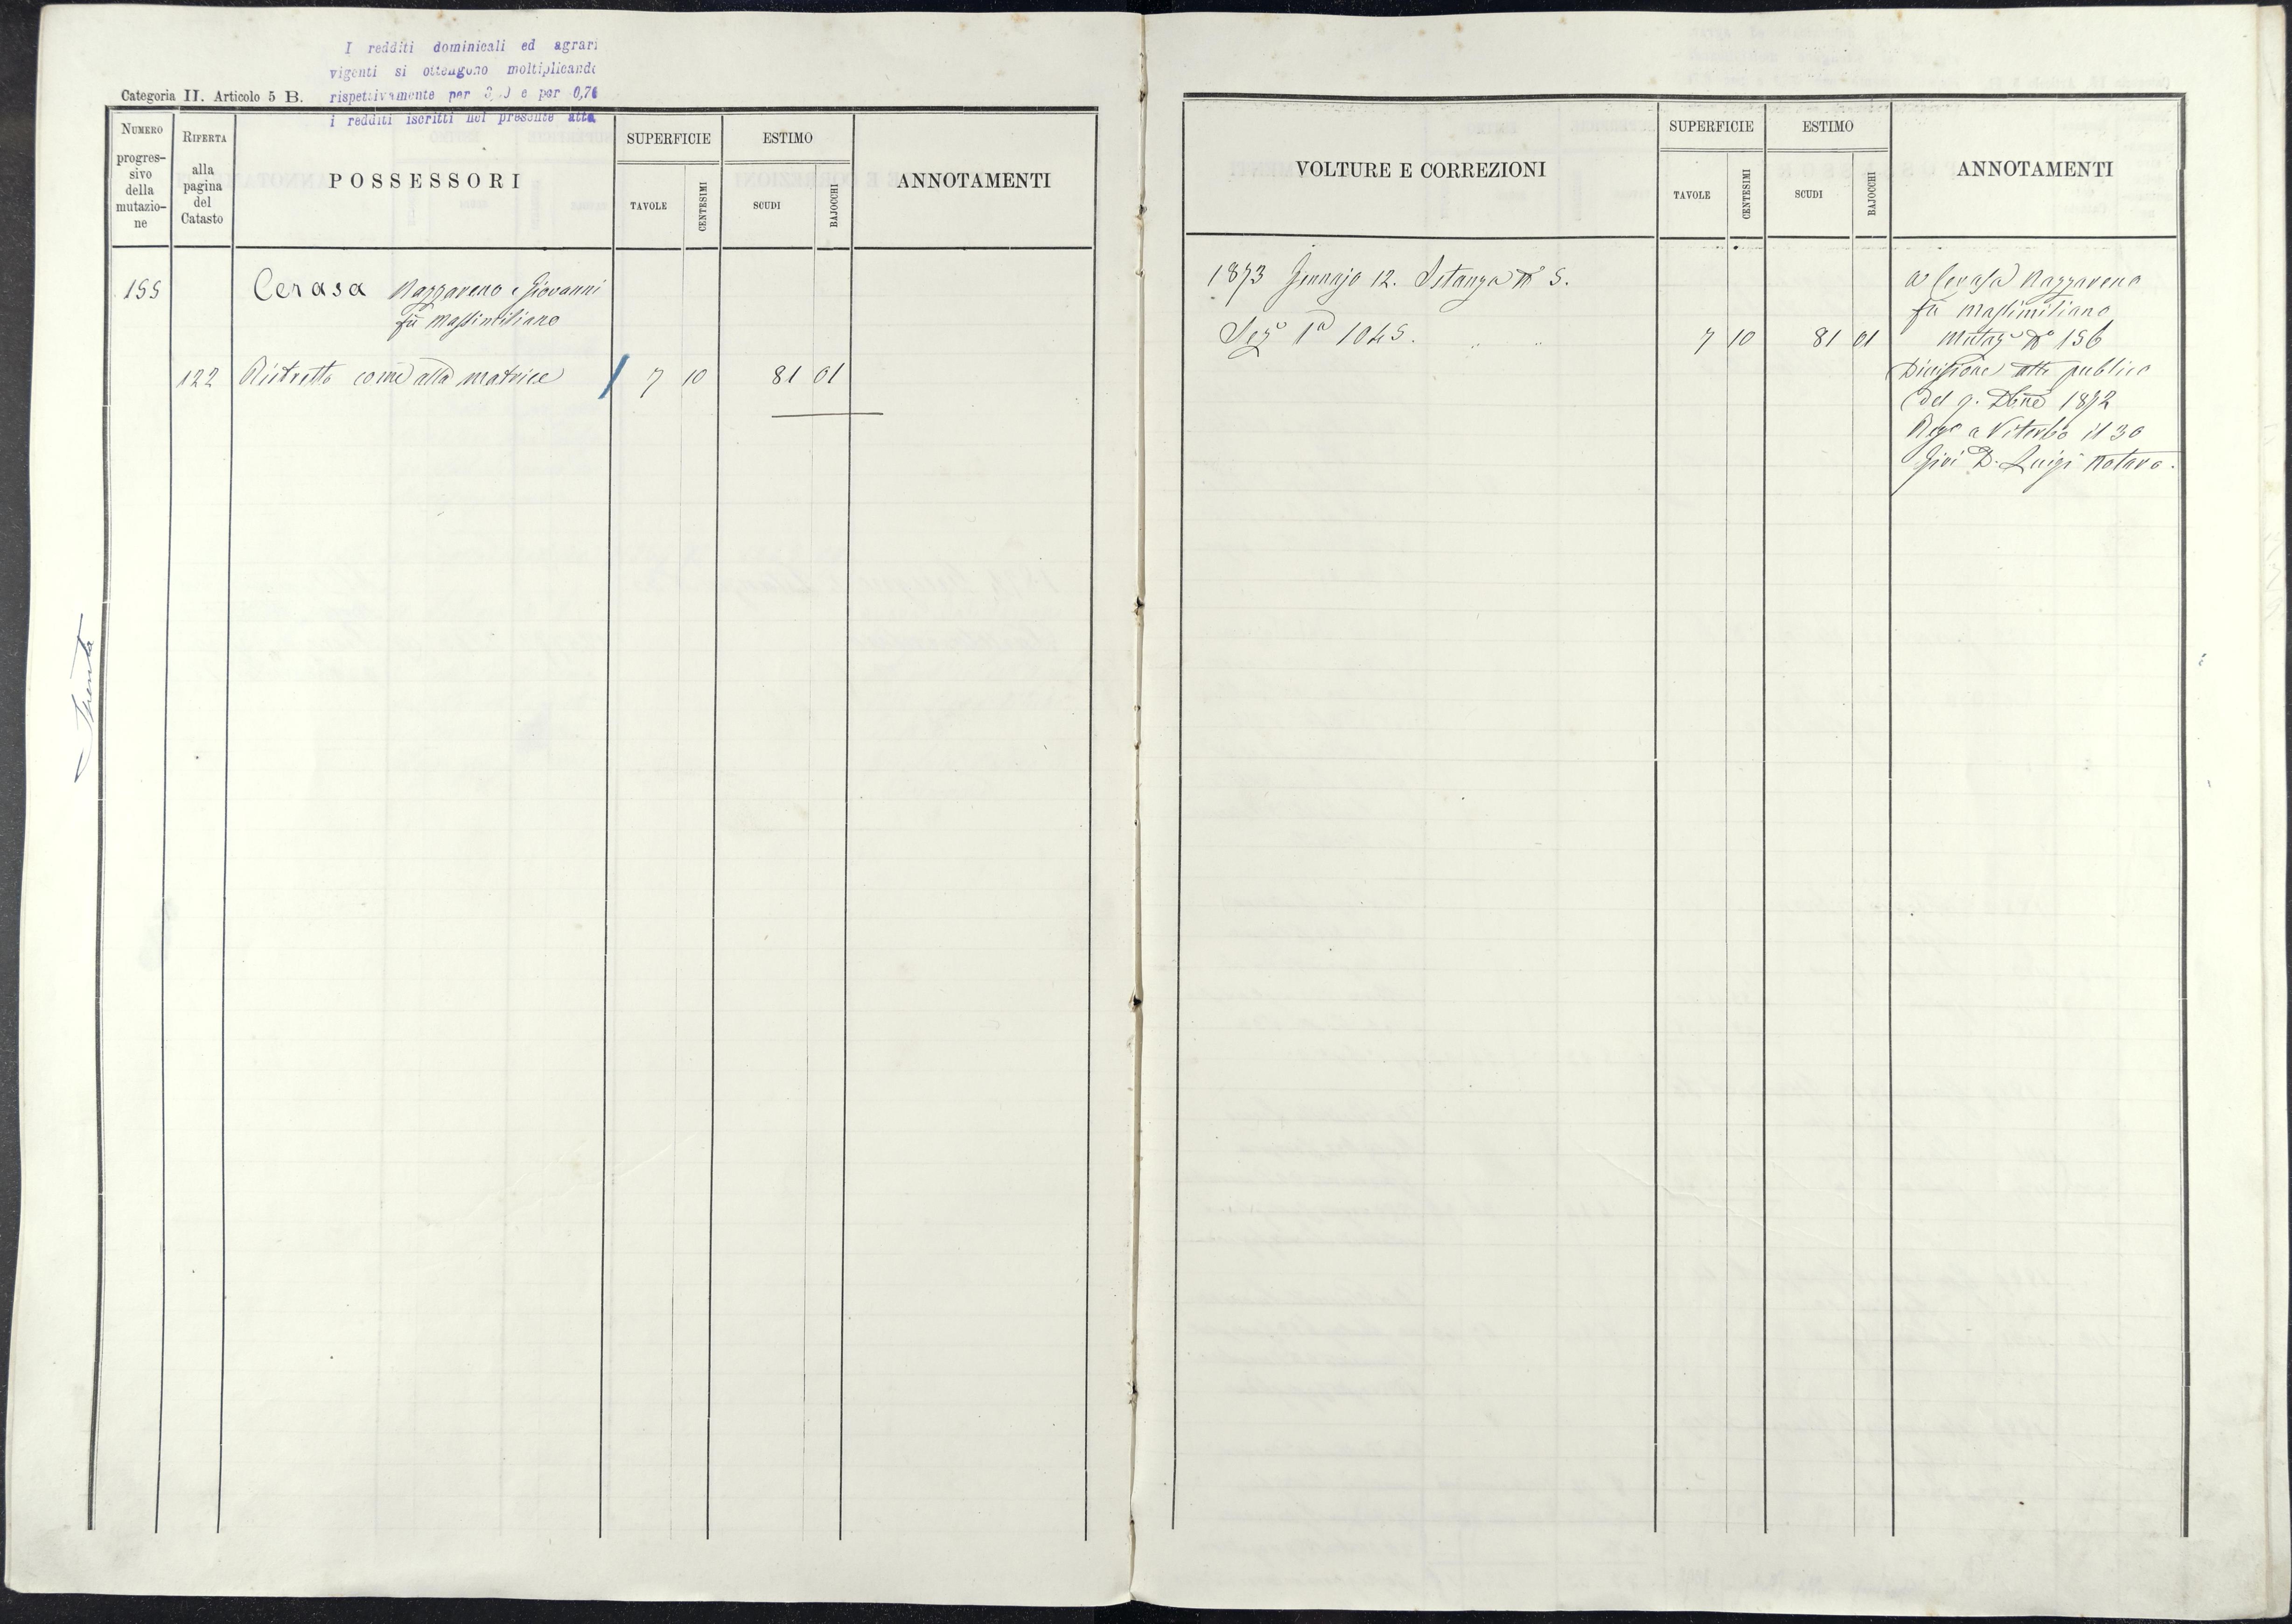 I redditi dominicali ed agrari
vigenti si ottengono moltiplicando
rispettivamente per e per 0,70
i redditi iscritti nel presente atto
Categoria II. Articolo 5 B.
NUMERO progres- sivo della mutazio- ne
RIFERTA alla pagina del Catasto
POSSESSORI
SUPERFICIE
TAVOLE
CENTESIMI
ESTIMO
SCUDI
BAJOCCHI
ANNOTAMENTI
155 Cerasa Nazzareno e Giovanni
fù Massimiliano
122 Ristretto come alla matrice 7 10 81 01
Trenta
VOLTURE E CORREZIONI
SUPERFICIE
TAVOLE
CENTESIMI
ESTIMO
SCUDI
BAJOCCHI
ANNOTAMENTI
1873 Gennajo 12. Istanza N° 5.
Sez° 1ª 1045. " " 7 10 81 01
a Cerasa Nazzareno
fu Massimiliano
mutaz° N° 156
Divisione atto publico
del 9. Xbre 1872
Reg° a Viterbo il 30
D. Luigi Notaro.